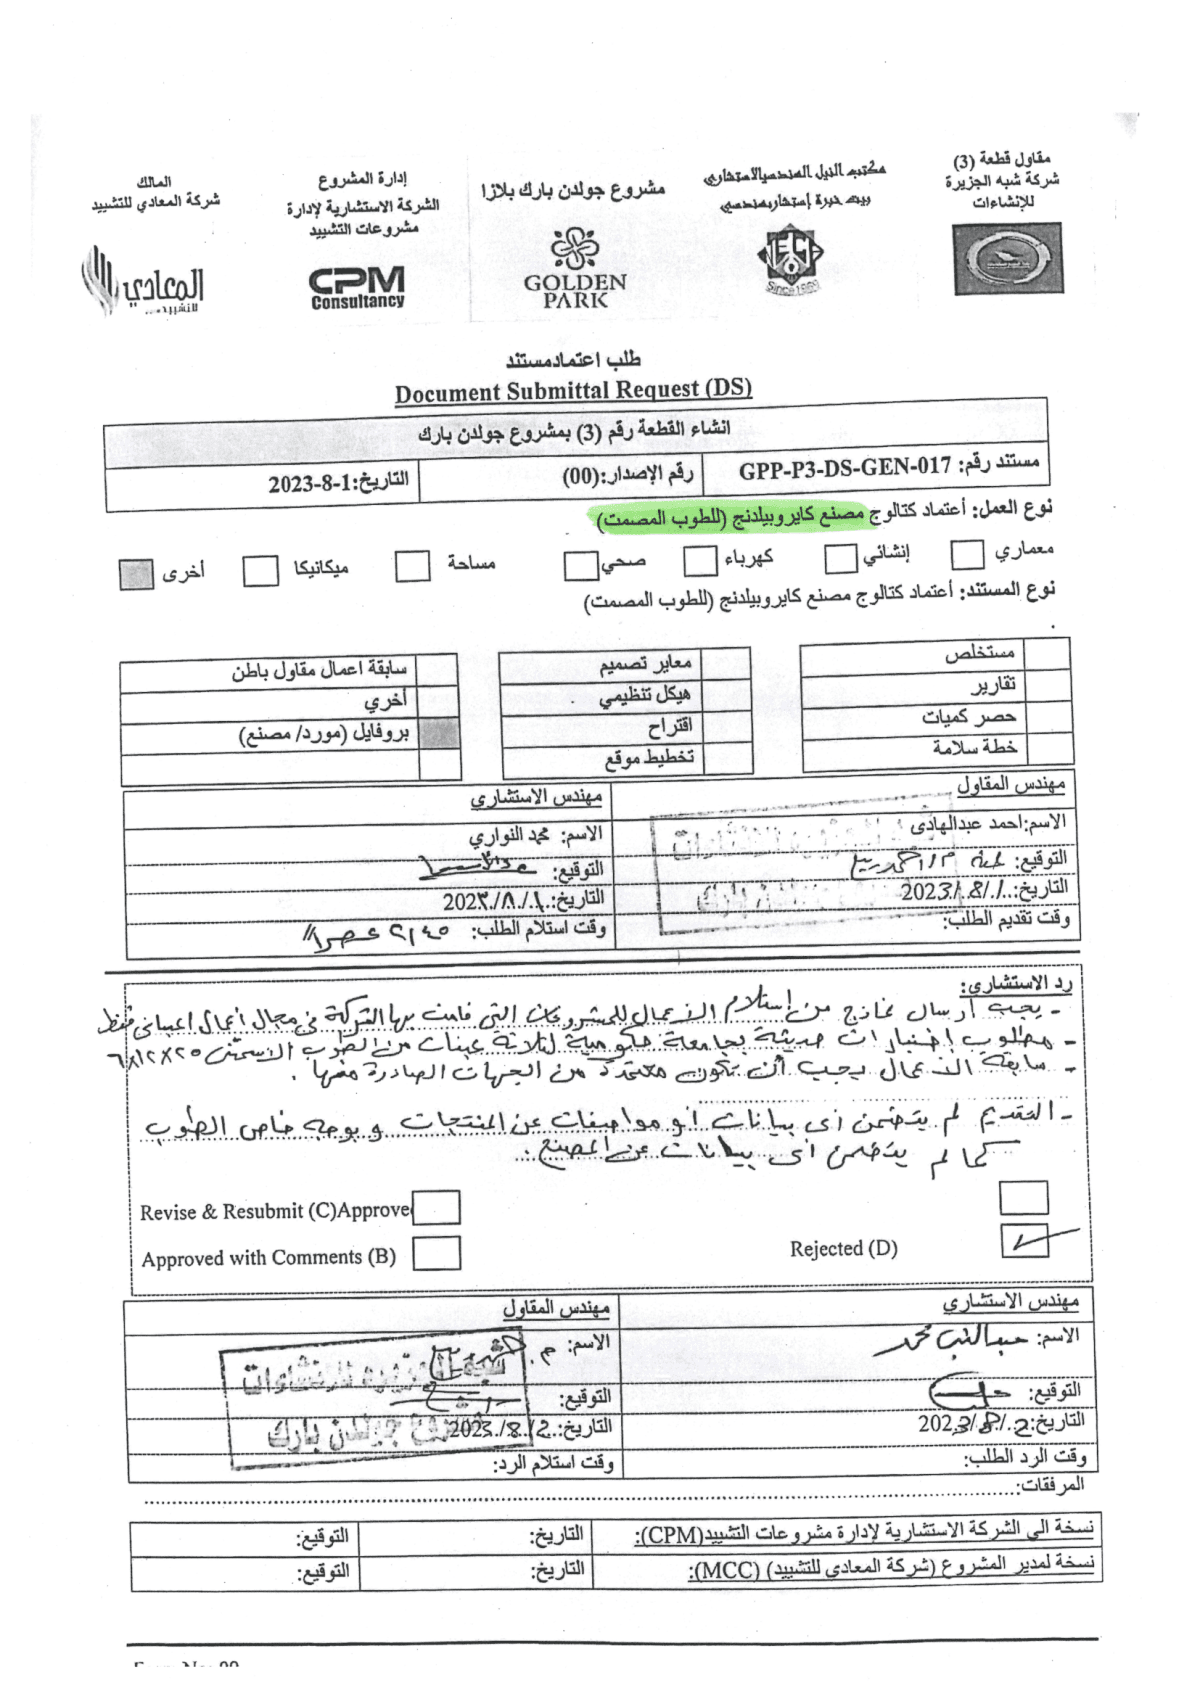 مقاول قطعة (3)
شركة شبه الجزيرة
للإنشاءات
مكتب النيل الهندسي الاستشاري
بيت خبرة إستشاري هندسي
NECB
Since 1969
مشروع جولدن بارك بلازا
GOLDEN
PARK
إدارة المشروع
الشركة الاستشارية لإدارة
مشروعات التشييد
CPM
Consultancy
المالك
شركة المعادي للتشييد
المعادي
للتشييد
طلب اعتمادمستند
Document Submittal Request (DS)
انشاء القطعة رقم (3) بمشروع جولدن بارك
مستند رقم: GPP-P3-DS-GEN-017 رقم الإصدار:(00) التاريخ:1-8-2023
نوع العمل: أعتماد كتالوج مصنع كايروبيلدنج (للطوب المصمت)
معماري إنشائي كهرباء صحي مساحة ميكانيكا أخرى
نوع المستند: أعتماد كتالوج مصنع كايروبيلدنج (للطوب المصمت)
مستخلص معاير تصميم سابقة اعمال مقاول باطن
تقارير هيكل تنظيمي أخري
حصر كميات اقتراح بروفايل (مورد/ مصنع)
خطة سلامة تخطيط موقع
مهندس المقاول مهندس الاستشاري
الاسم:احمد عبدالهادى الاسم: محمد النواري
التوقيع: التوقيع:
التاريخ:1/8/2023 التاريخ:١/٨/2023
وقت تقديم الطلب: وقت استلام الطلب: ٢,٤٥ عصرا
رد الاستشاري:
- يجب ارسال نماذج من إستلام الأعمال للمشروعات التى قامت بها الشركة فى مجال أعمال
- مطلوب اختبارات حديثة بجامعة حكومية لثلاثة عينات من الطوب الأسمنتى ٢٥×١٢×٦
- سابقة الأعمال يجب أن تكون معتمدة من الجهات الصادرة منها.
- التقديم لم يتضمن أى بيانات أو مواصفات عن المنتجات وبوجه خاص الطوب
كما لم يتضمن أى بيانات عن المصنع.
Revise & Resubmit (C)Approve
Approved with Comments (B) Rejected (D)
مهندس الاستشاري مهندس المقاول
الاسم: الاسم: م.
التوقيع: التوقيع:
التاريخ:2/8/2023 التاريخ:2/8/2023
شبه الجزيرة للإنشاءات
جولدن بارك
وقت الرد الطلب: وقت استلام الرد:
المرفقات:
نسخة الى الشركة الاستشارية لإدارة مشروعات التشييد(CPM): التاريخ: التوقيع:
نسخة لمدير المشروع (شركة المعادي للتشييد) (MCC): التاريخ: التوقيع: